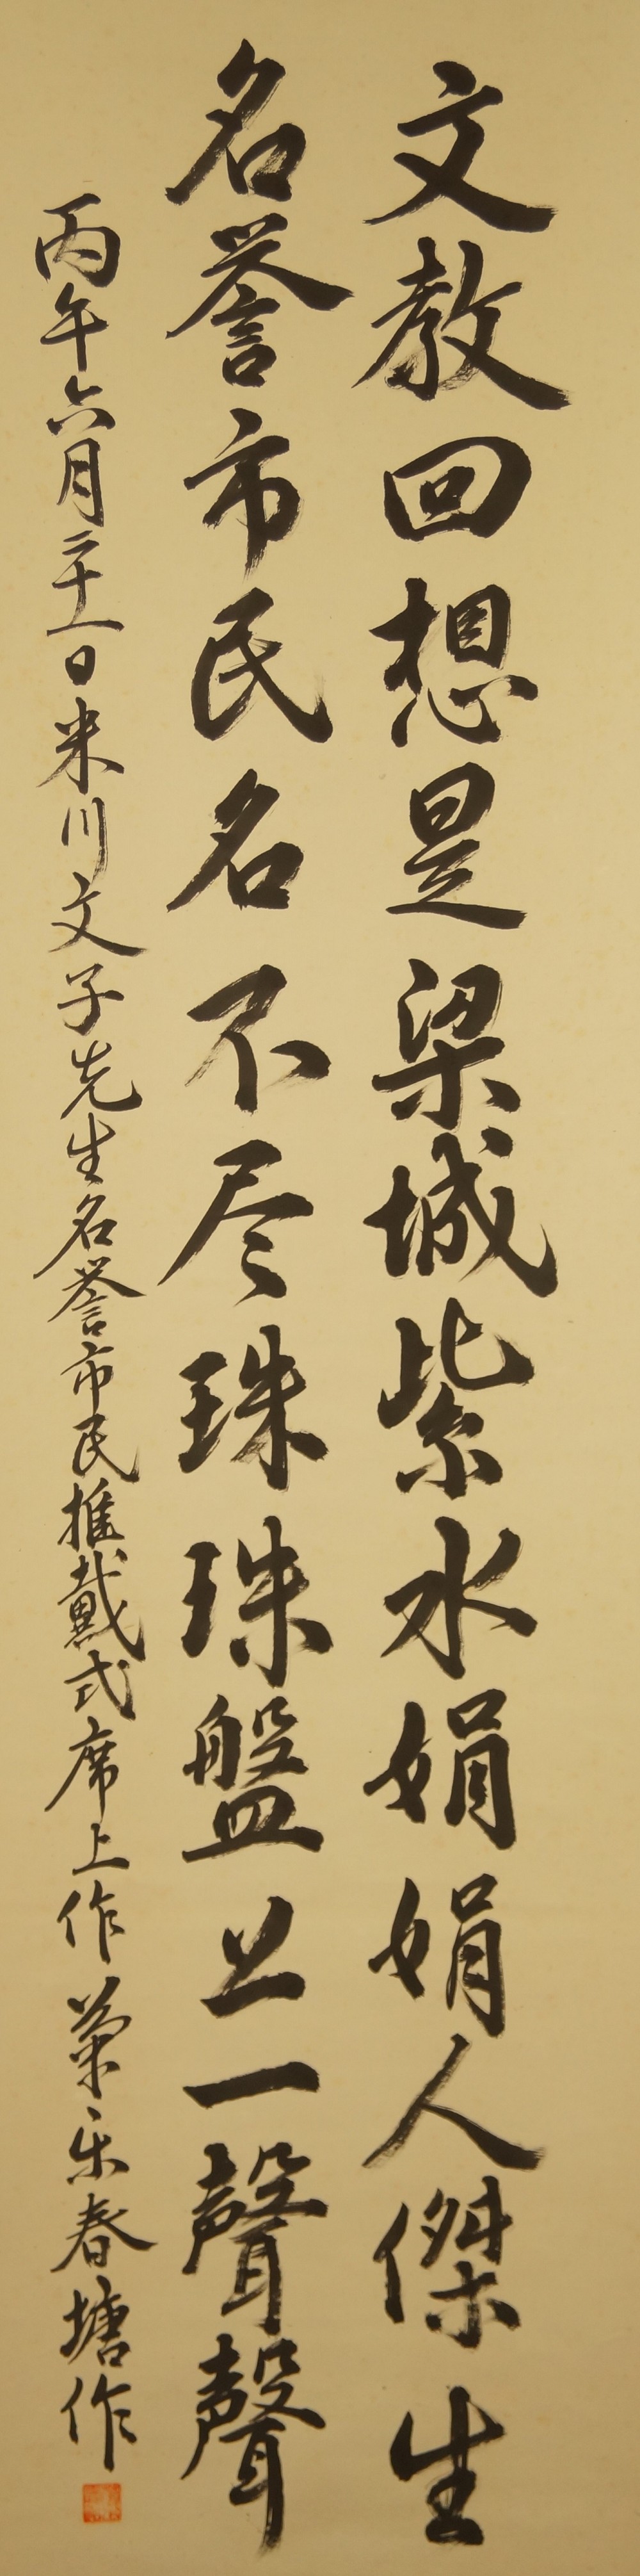 文教回想是梁城紫水娟娟人傑生
名誉市民名不尽珠珠盤上一聲聲
丙午六月二十一日米川文子先生名誉市民推戴式席上作 菊禾春塘作